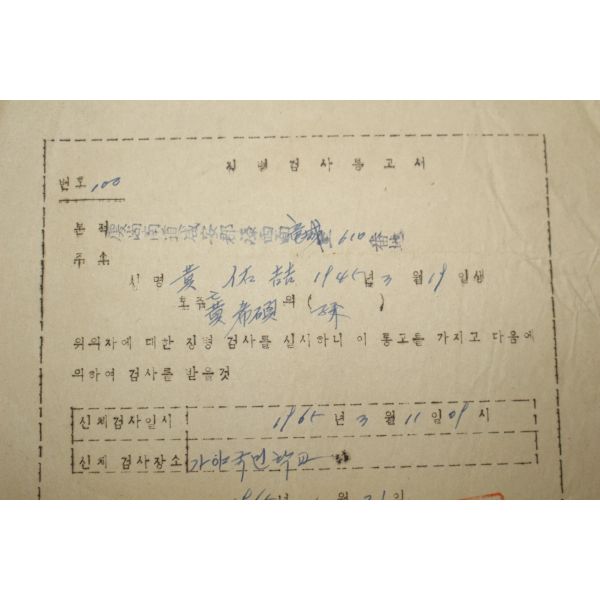 징병검사통고서
번호 100
본적 慶尚南道咸安郡漆西面 里 610 番地
주소
신명 黄佑喆 1945년 3월 19일생
호주 黄 碩 의 ( )
위의자에 대한 징병 검사를 실시하니 이 통고를 가지고 다음에
의하여 검사를 받을것
신체검사일시 1965년 3월 11일 09시
신체 검사장소 가야국민학교
1965년 월 21일